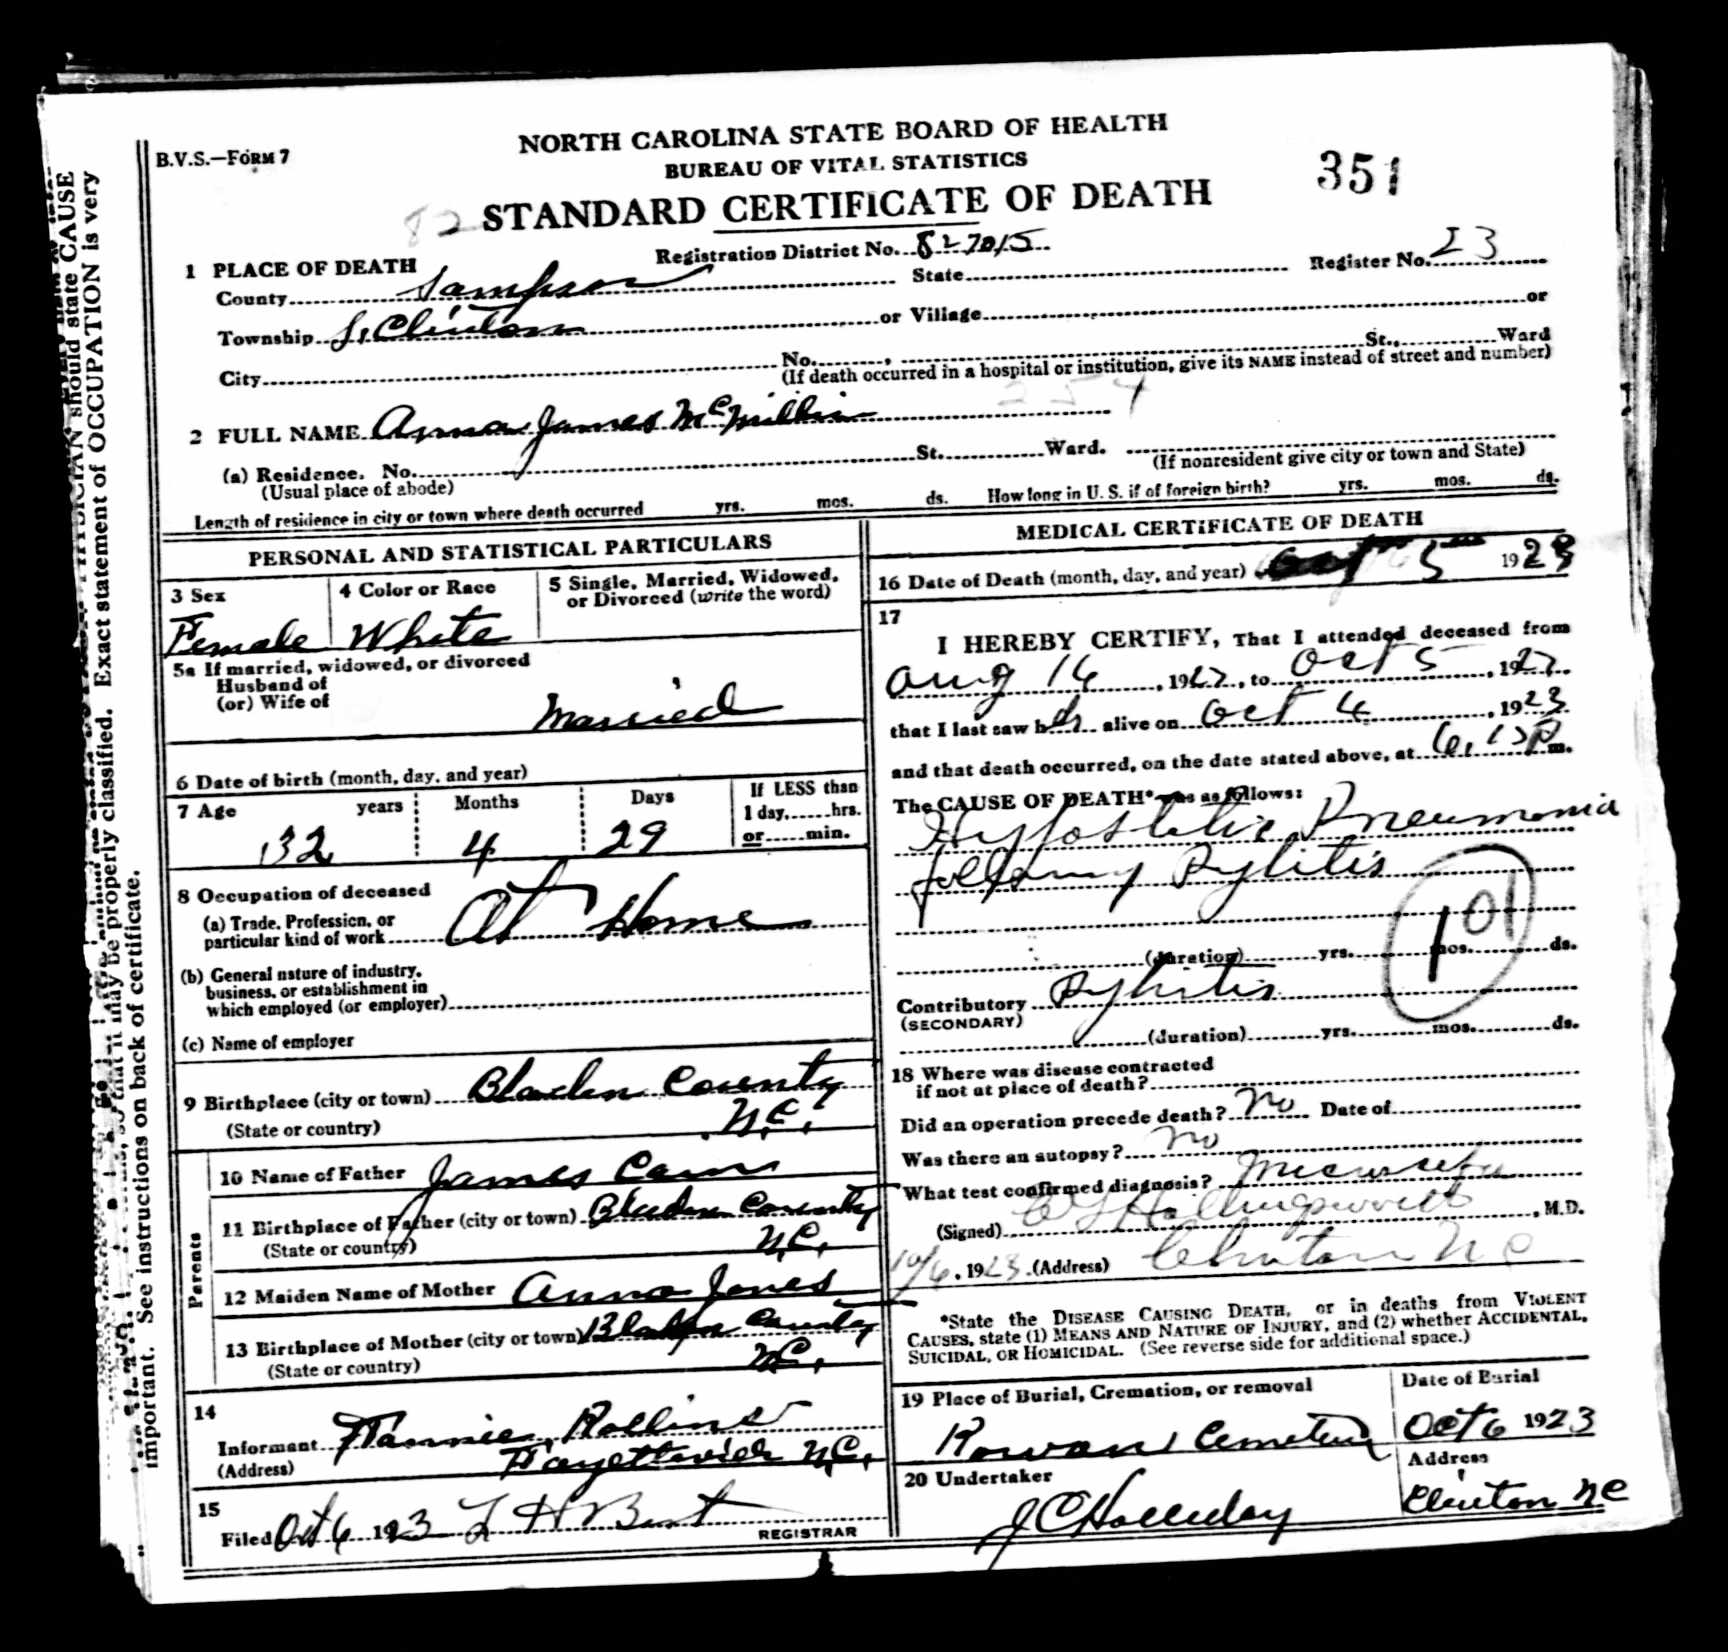 B.V.S.—FORM 7
NORTH CAROLINA STATE BOARD OF HEALTH
BUREAU OF VITAL STATISTICS
82 STANDARD CERTIFICATE OF DEATH
351
1 PLACE OF DEATH
Registration District No. 82-7015
Register No. 23
County Sampson State
Township S. Clinton or Village or
City No. , St., Ward
(If death occurred in a hospital or institution, give its NAME instead of street and number)
254
2 FULL NAME Anna James McMillin
(a) Residence. No. St. Ward.
(Usual place of abode)
(If nonresident give city or town and State)
Length of residence in city or town where death occurred yrs. mos. ds. How long in U. S. if of foreign birth? yrs. mos. ds.
PERSONAL AND STATISTICAL PARTICULARS
3 Sex
Female
4 Color or Race
White
5 Single, Married, Widowed,
or Divorced (write the word)
5a If married, widowed, or divorced
Husband of
(or) Wife of
Married
6 Date of birth (month, day, and year)
7 Age years Months Days
32 4 29
If LESS than
1 day, hrs.
or min.
8 Occupation of deceased
(a) Trade, Profession, or
particular kind of work At Home
(b) General nature of industry,
business, or establishment in
which employed (or employer)
(c) Name of employer
9 Birthplace (city or town) Bladen County
(State or country) N.C.
Parents
10 Name of Father James Cain
11 Birthplace of Father (city or town) Bladen County
(State or country) N.C.
12 Maiden Name of Mother Anna Jones
13 Birthplace of Mother (city or town) Bladen County
(State or country) N.C.
14
Informant Fannie Rollins
(Address) Fayetteville N.C.
15
Filed Oct 6 1923 L H B
REGISTRAR
MEDICAL CERTIFICATE OF DEATH
16 Date of Death (month, day, and year) Oct 5 1923
17
I HEREBY CERTIFY, THAT I attended deceased from
Aug 16, 192, to Oct 5, 192
that I last saw her alive on Oct 4, 1923
and that death occurred, on the date stated above, at 6, P m.
The CAUSE OF DEATH* was as follows:
Hypostatic Pneumonia
following Pylitis
101
(duration) yrs. mos. ds.
Contributory Pylitis
(SECONDARY)
(duration) yrs. mos. ds.
18 Where was disease contracted
if not at place of death?
Did an operation precede death? No Date of
Was there an autopsy? No
What test confirmed diagnosis?
(Signed) Hollingsworth, M.D.
10/6, 1923. (Address) Clinton N C
*State the DISEASE CAUSING DEATH, or in deaths from VIOLENT
CAUSES, state (1) MEANS AND NATURE OF INJURY, and (2) whether ACCIDENTAL,
SUICIDAL, OR HOMICIDAL. (See reverse side for additional space.)
19 Place of Burial, Cremation, or removal
Rowan Cemetery
Date of Burial
Oct 6 1923
20 Undertaker
J C Holliday
Address
Clinton NC
PHYSICIAN should state CAUSE
may be properly classified. Exact statement of OCCUPATION is very
important. See instructions on back of certificate.